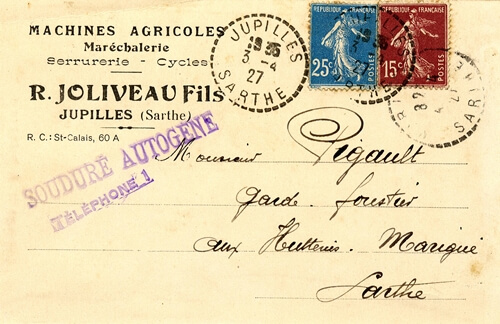 MACHINES AGRICOLES
Maréchalerie
Serrurerie - Cycles
R. JOLIVEAU Fils
JUPILLES (Sarthe)
R. C.: St-Calais, 60 A
SOUDURE AUTOGÈNE
TÉLÉPHONE 1
JUPILLES
3 - 4
27
SARTHE
REPUBLIQUE FRANÇAISE
25c
POSTES
REPUBLIQUE FRANÇAISE
15c
POSTES
Monsieur Pégault
Garde-forestier
aux Hutteries. Marigné
Sarthe